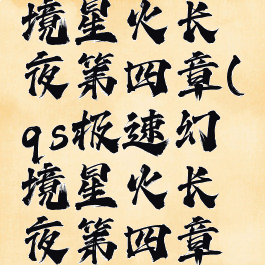 境星火长
夜第四章(
qs极速幻
境星火长
夜第四章